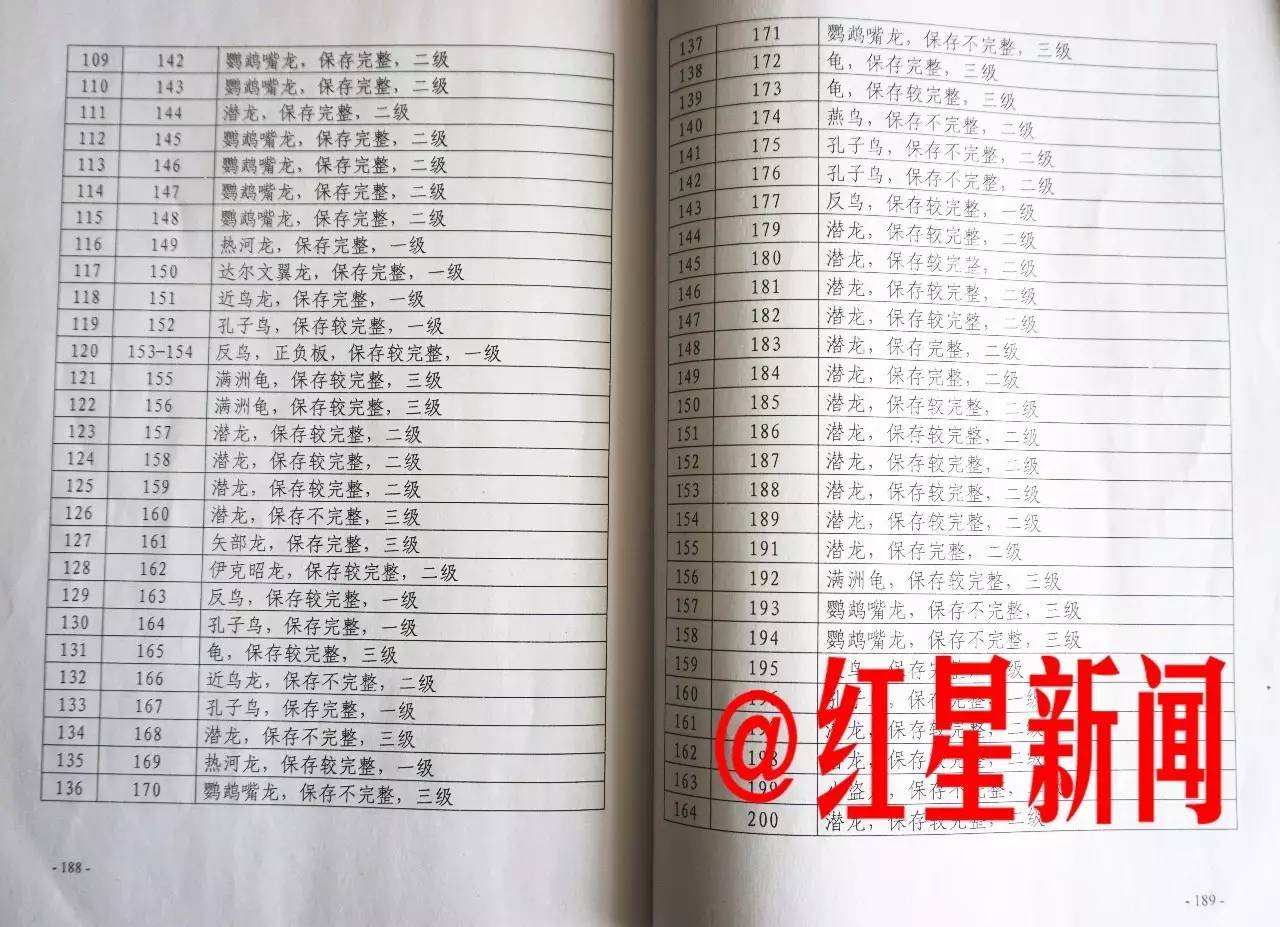 109 142 鹦鹉嘴龙，保存完整，二级
110 143 鹦鹉嘴龙，保存完整，二级
111 144 潜龙，保存完整，二级
112 145 鹦鹉嘴龙，保存完整，二级
113 146 鹦鹉嘴龙，保存完整，二级
114 147 鹦鹉嘴龙，保存完整，二级
115 148 鹦鹉嘴龙，保存完整，二级
116 149 热河龙，保存完整，一级
117 150 达尔文翼龙，保存完整，一级
118 151 近鸟龙，保存完整，一级
119 152 孔子鸟，保存较完整，一级
120 153-154 反鸟，正负板，保存较完整，一级
121 155 满洲龟，保存较完整，三级
122 156 满洲龟，保存较完整，三级
123 157 潜龙，保存较完整，二级
124 158 潜龙，保存较完整，二级
125 159 潜龙，保存较完整，二级
126 160 潜龙，保存不完整，三级
127 161 矢部龙，保存完整，三级
128 162 伊克昭龙，保存较完整，二级
129 163 反鸟，保存较完整，一级
130 164 孔子鸟，保存完整，一级
131 165 龟，保存较完整，三级
132 166 近鸟龙，保存不完整，二级
133 167 孔子鸟，保存完整，一级
134 168 潜龙，保存不完整，三级
135 169 热河龙，保存较完整，一级
136 170 鹦鹉嘴龙，保存不完整，三级
-188-
137 171 鹦鹉嘴龙，保存不完整，三级
138 172 龟，保存完整，三级
139 173 龟，保存较完整，三级
140 174 燕鸟，保存不完整，二级
141 175 孔子鸟，保存不完整，二级
142 176 孔子鸟，保存不完整，二级
143 177 反鸟，保存较完整，一级
144 179 潜龙，保存较完整，二级
145 180 潜龙，保存较完整，二级
146 181 潜龙，保存较完整，二级
147 182 潜龙，保存较完整，二级
148 183 潜龙，保存完整，二级
149 184 潜龙，保存完整，二级
150 185 潜龙，保存较完整，二级
151 186 潜龙，保存较完整，二级
152 187 潜龙，保存较完整，二级
153 188 潜龙，保存较完整，二级
154 189 潜龙，保存较完整，二级
155 191 潜龙，保存完整，二级
156 192 满洲龟，保存较完整，三级
157 193 鹦鹉嘴龙，保存不完整，三级
158 194 鹦鹉嘴龙，保存不完整，三级
159 195 鸟，保存完整，一级
160 孔子鸟，保存完整，一级
161 潜龙，保存较完整，二级
162 198 龙，保存较完整，二级
163 199 保存不完整，
164 200 潜龙，保存较完整，二级
@红星新闻
-189-